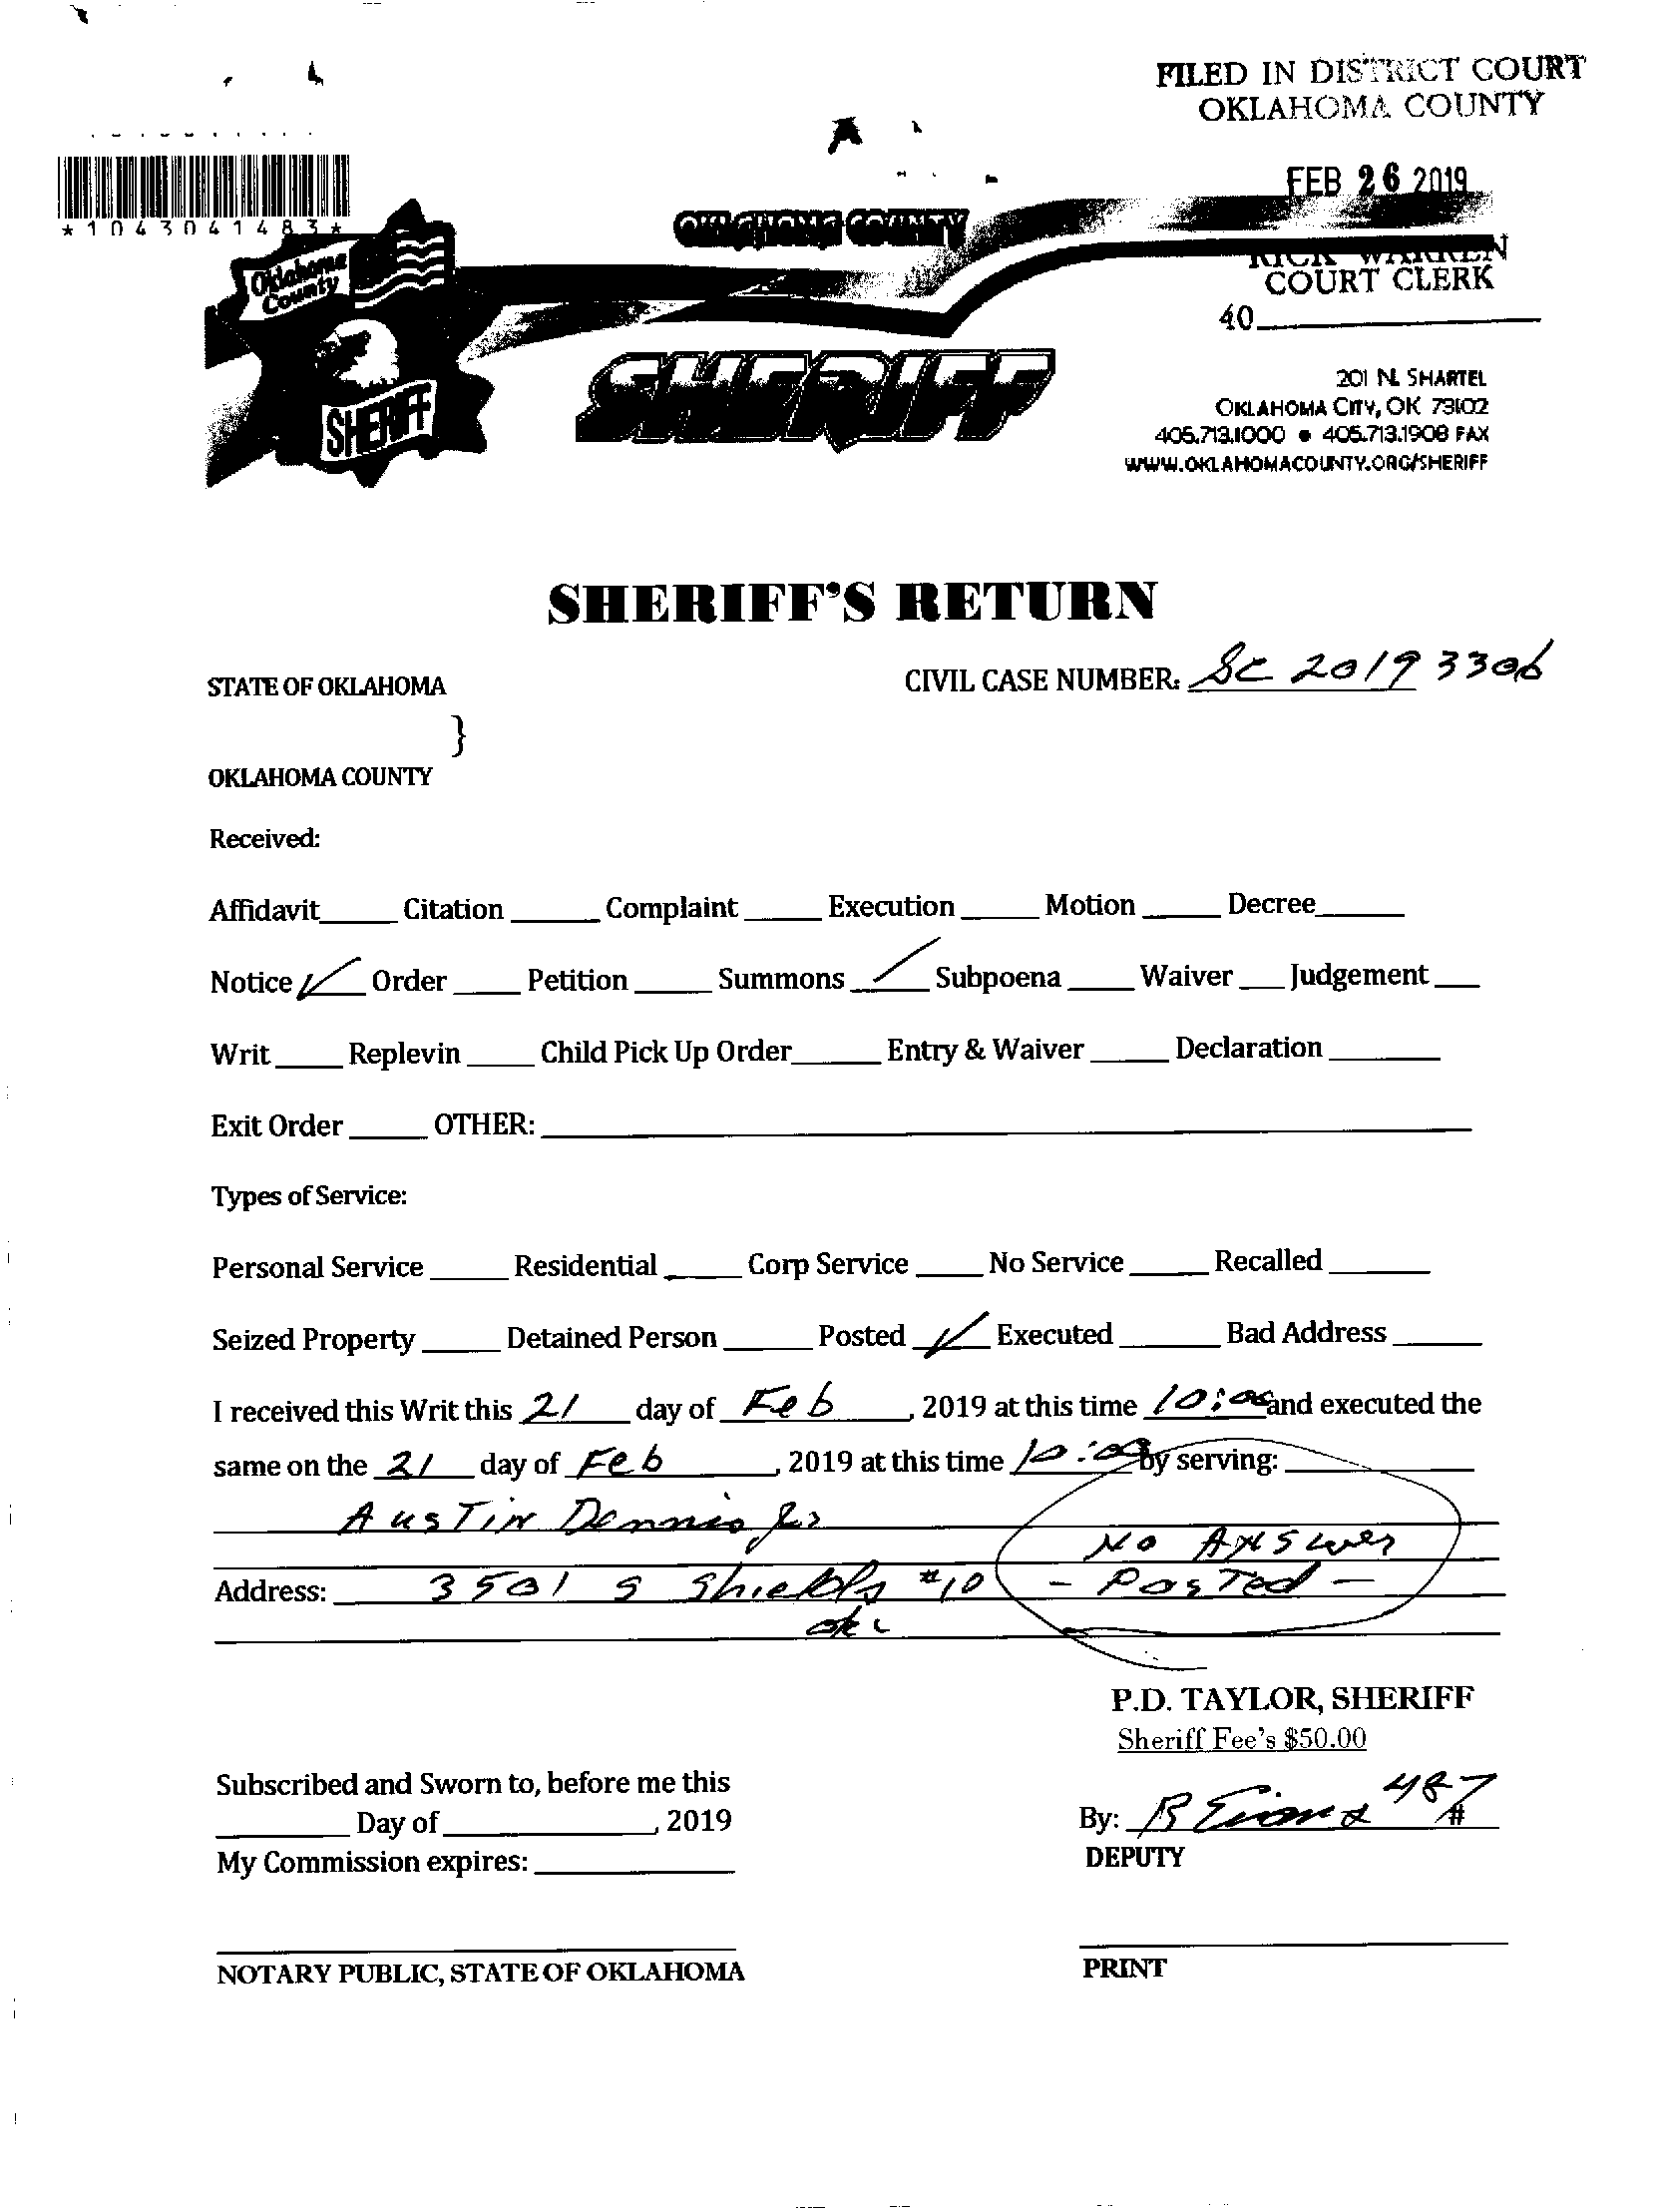 FILED IN DISTRICT COURT
OKLAHOMA COUNTY
FEB 26 2019
RICK WARREN
COURT CLERK
40
*1043041483*
OKLAHOMA COUNTY
Oklahoma
County
SHERIFF
SHERIFF
201 N. SHARTEL
OKLAHOMA CITY, OK 73102
405.713.1000 • 405.713.1908 FAX
WWW.OKLAHOMACOUNTY.ORG/SHERIFF
SHERIFF'S RETURN
STATE OF OKLAHOMA CIVIL CASE NUMBER: SC 2019 3306
}
OKLAHOMA COUNTY
Received:
Affidavit Citation Complaint Execution Motion Decree
Notice ✓ Order Petition Summons ✓ Subpoena Waiver Judgement
Writ Replevin Child Pick Up Order Entry & Waiver Declaration
Exit Order OTHER:
Types of Service:
Personal Service Residential Corp Service No Service Recalled
Seized Property Detained Person Posted ✓ Executed Bad Address
I received this Writ this 21 day of Feb, 2019 at this time 10:00 and executed the
same on the 21 day of Feb, 2019 at this time 10:00 by serving:
Austin Dennis
No Answer
Address: 3501 S Shields #10 - Posted -
okc
P.D. TAYLOR, SHERIFF
Sheriff Fee's $50.00
Subscribed and Sworn to, before me this
Day of , 2019
By: 487 #
My Commission expires:
DEPUTY
NOTARY PUBLIC, STATE OF OKLAHOMA
PRINT